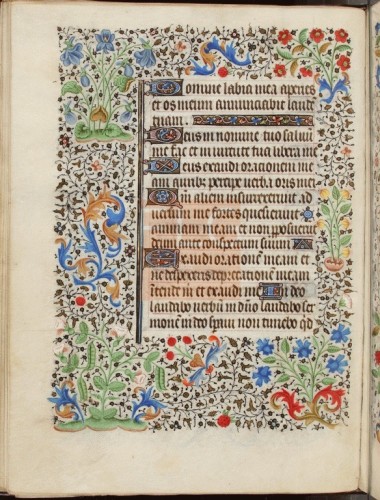 Domine labia mea aperies
et os meum annunciabit laudē
tuam.
Deus in nomine tuo saluū
me fac et in uirtute tua libera me
Deus exaudi orationem me
am auribus percipe verba oris mei
Qm̄ alieni insurrexerunt ad
uersum me fortes quesierunt
animam meam et non proposuerūt
deum ante conspectum suum
Exaudi orationē meam et
ne despexeris deprecationē meam
intende m̄ et exaudi me In deo
laudabo verbū in dn̄o laudabo ser
monē in deo speraui non timebo qd